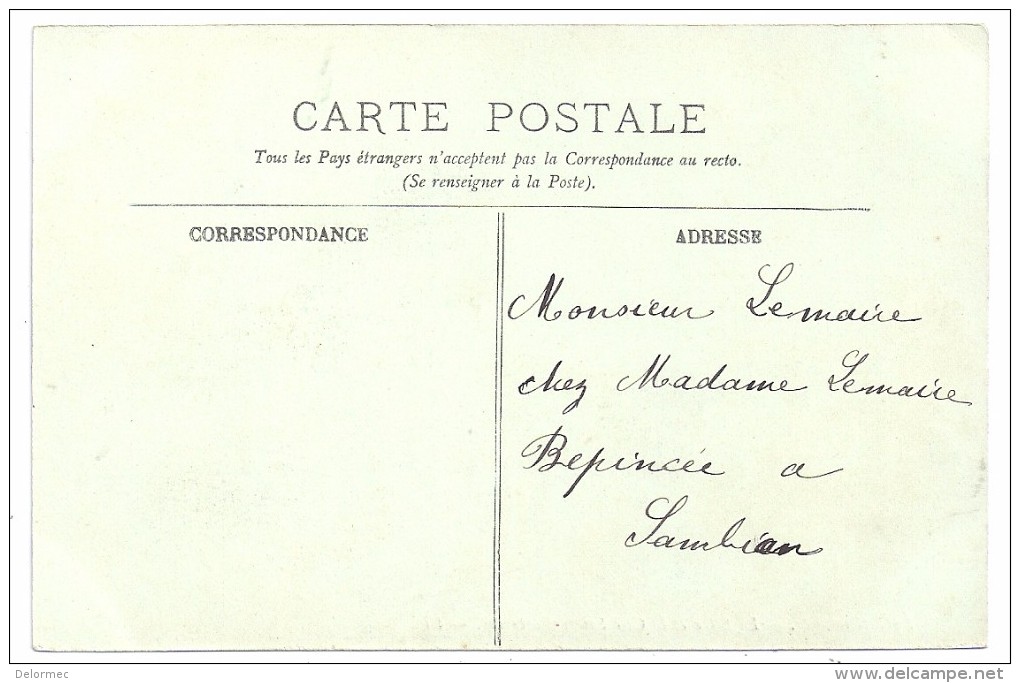 CARTE POSTALE
Tous les Pays étrangers n'acceptent pas la Correspondance au recto.
(Se renseigner à la Poste).
CORRESPONDANCE
ADRESSE
Monsieur Lemaire
chez Madame Lemaire
Bepincée a
Sambian
Delormec
www.delcampe.net